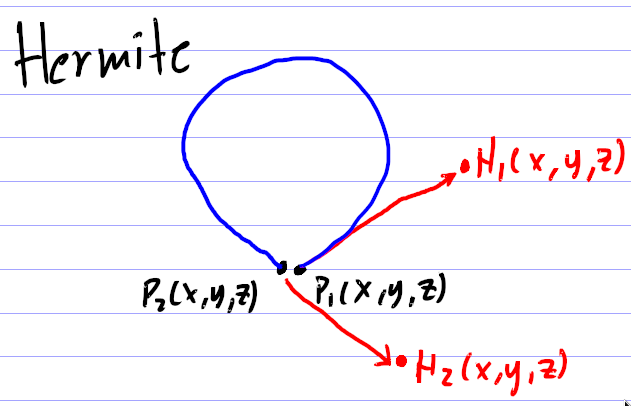 Hermite
H₁(x,y,z)
P₂(x,y,z) P₁(x,y,z)
H₂(x,y,z)